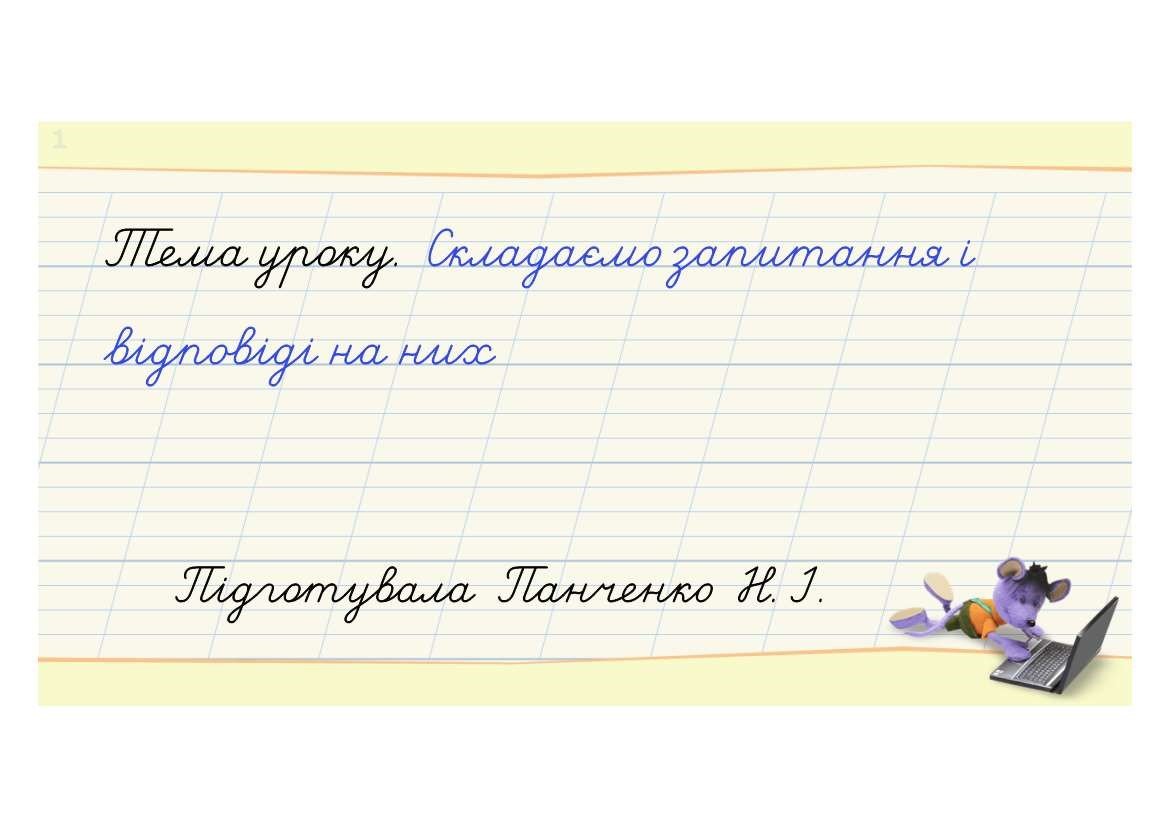 1
Тема уроку. Складаємо запитання і
відповіді на них
Підготувала Панченко Н. І.